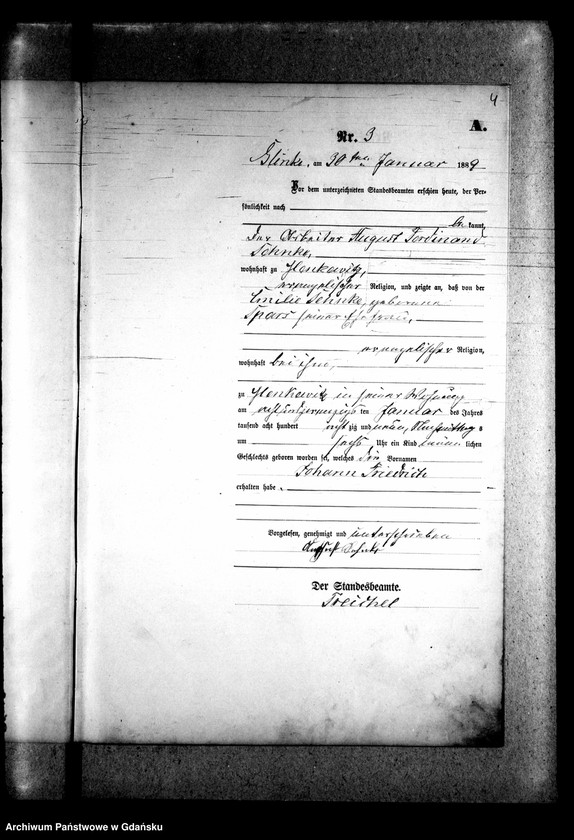 4
A.
Nr. 3
Glinke, am 30ten Januar 1889
Vor dem unterzeichneten Standesbeamten erschien heute, der Per-
sönlichkeit nach
be kannt,
der Arbeiter August Ferdinand
wohnhaft zu
evangelischer Religion, und zeigte an, daß von der
Emilie geborene
seiner Ehefrau,
evangelischer Religion,
wohnhaft bei ihm,
zu in seiner Wohnung
am achtundzwanzigsten Januar des Jahres
tausend acht hundert acht zig und neun, Nachmittag s
um sechs Uhr ein Kind männ lichen
Geschlechts geboren worden sei, welches die Vornamen
Johann Friedrich
erhalten habe.
Vorgelesen, genehmigt und unterschrieben
August
Der Standesbeamte.
Treichel
Archiwum Państwowe w Gdańsku